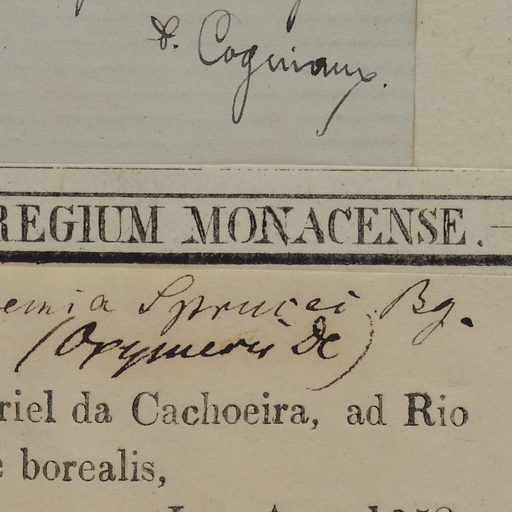 Cogniaux.
REGIUM MONACENSE.
emia Sprucei Bg.
(Oxymeris DC)
riel da Cachoeira, ad Rio
e borealis,